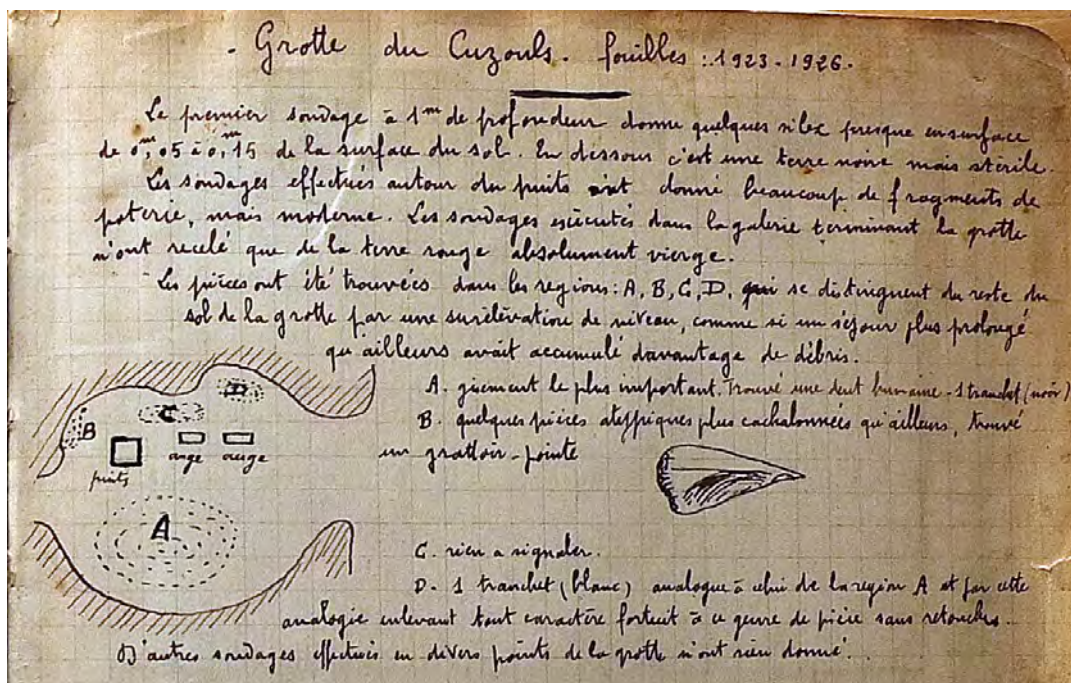 - Grotte du Cuzouls - fouilles : 1923 - 1926 -
Le premier sondage à 1m de profondeur donne quelques silex presque en surface
de 0m,05 à 0m,15 de la surface du sol. En dessous c'est une terre noire mais stérile.
Les sondages effectués autour du puits ont donné beaucoup de fragments de
poterie, mais moderne. Les sondages exécutés dans la galerie terminant la grotte
n'ont recelé que de la terre rouge absolument vierge.
Les pièces ont été trouvées dans les regions : A, B, C, D, qui se distinguent du reste du
sol de la grotte par une surélévation de niveau, comme si un séjour plus prolongé
qu'ailleurs avait accumulé davantage de débris.
A. gisement le plus important. Trouvé une dent humaine - 1 tranchet (noir)
B. quelques pièces atyppiques plus cachalonnées qu'ailleurs, trouvé
un grattoir-pointe
D
C
B
puits
auge
auge
A
C. rien a signaler.
D. 1 tranchet (blanc) analogue à celui de la region A et par cette
analogie enlevant tout caractère fortuit à ce genre de pièce sans retouches.
D'autres sondages effectués en divers points de la grotte n'ont rien donné.